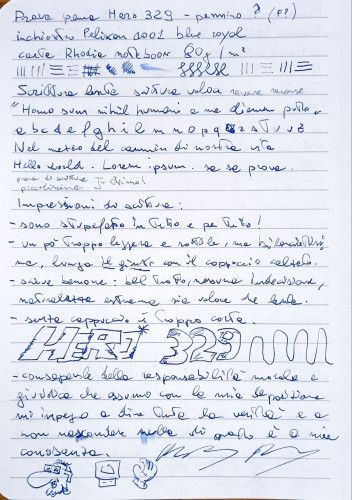 Prova penna Hero 329 - pennino ? (F?)
inchiostro Pelikan 4001 blue royal
carta Rhodia notebook 80g/m²
Scrittura lenta scrittura veloce reverse reverse
"Homo sum nihil humani a me alienum puto"
a b c d e f g h i l m n o p q r s t u v z
Nel mezzo del cammin di nostra vita
Hello world. Lorem ipsum. sa sa prova.
prova di scrittura
piccolissima
Impressioni di scrittura:
- sono stupefatto in tutto e per tutto!
- un pò troppo leggera e sottile, ma bilanciatissi
ma, lunga il giusto con il cappuccio calzato.
- scrive benone: bel tratto, nessuna indecisione,
naturalezza estrema sia veloce che lenta.
- senza cappuccio è troppo corta.
HERO 329
- consapevole della responsabilità morale e
giuridica che assumo con la mia deposizione
mi impegno a dire tutta la verità e a
non nascondere nulla di quanto è a mia
conoscenza.